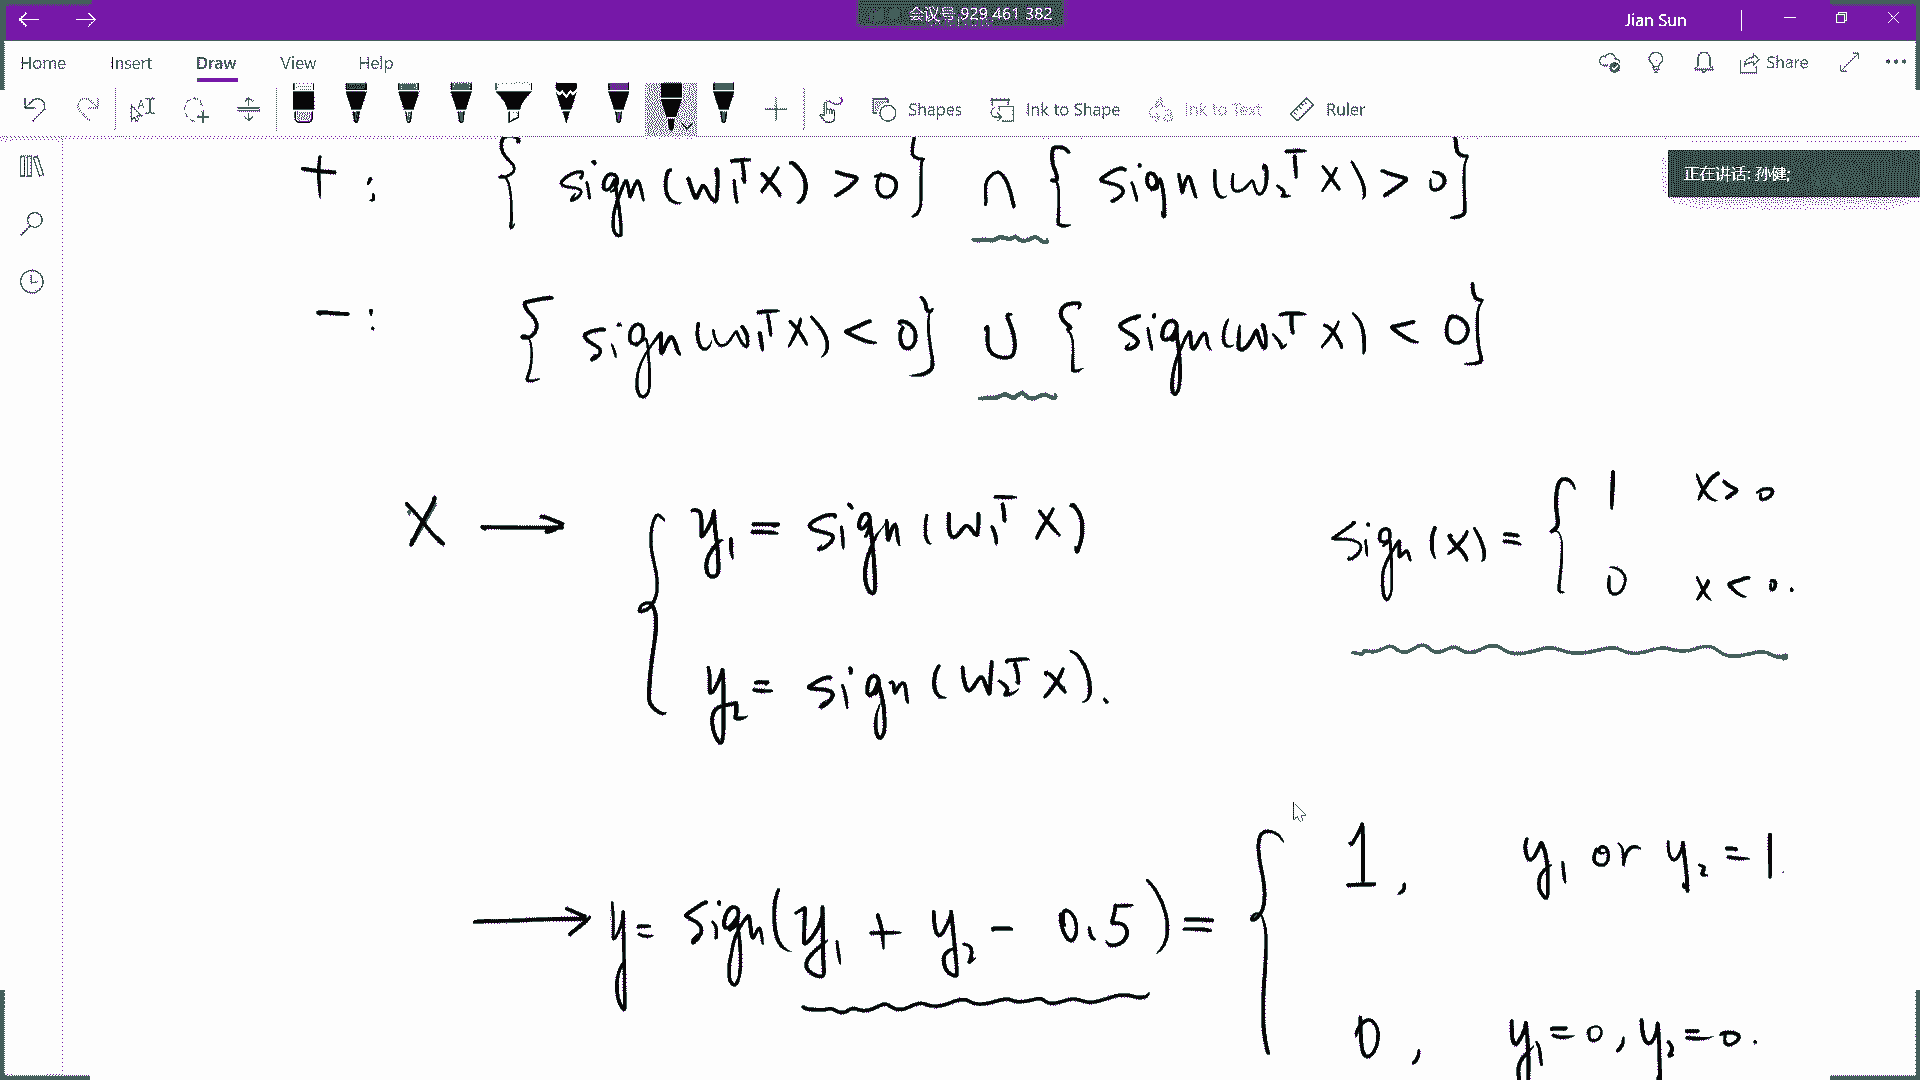 会议号 929 461 382
Jian Sun
Home Insert Draw View Help
Share
Shapes Ink to Shape Ink to Text Ruler
正在讲话: 孙健;
+: { sign(W₁ᵀX) > 0 } ∩ { sign(W₂ᵀX) > 0 }
-: { sign(W₁ᵀX) < 0 } ∪ { sign(W₂ᵀX) < 0 }
X → { y₁ = sign(W₁ᵀX)
y₂ = sign(W₂ᵀX).
sign(x) = { 1 x > 0
0 x < 0.
→ y = sign(y₁ + y₂ - 0.5) = { 1, y₁ or y₂ = 1.
0, y₁=0, y₂=0.